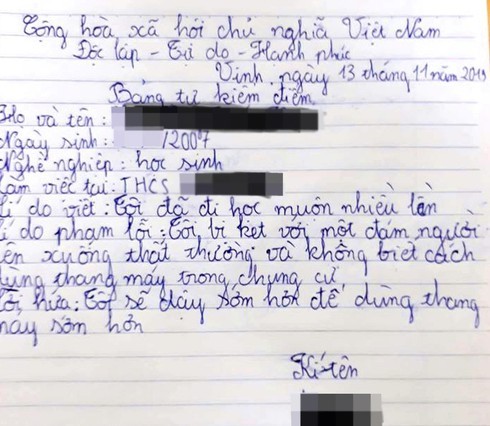 Cộng hòa xã hội chủ nghĩa Việt Nam
Độc lập - Tự do - Hạnh phúc
Vinh, ngày 13 tháng 11 năm 2019
Bảng tự kiểm điểm
Họ và tên:
Ngày sinh: /2007
Nghề nghiệp: học sinh
Làm việc tại: THCS
Lí do viết: Tôi đã đi học muộn nhiều lần
Lí do phạm lỗi: Tôi bị kẹt với một đám người
lên xuống thất thường và không biết cách
dùng thang máy trong chung cư
Lời hứa: Tôi sẽ dậy sớm hơn để dùng thang
máy sớm hơn
Kí tên